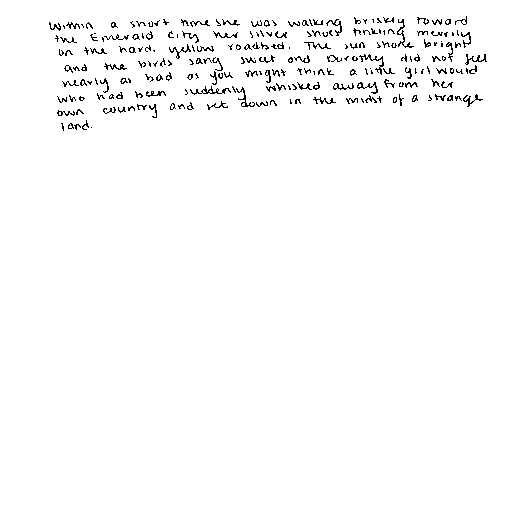 Within a short time she was walking briskly toward
the Emerald City her silver shoes tinkling merrily
on the hard, yellow roadbed. The sun shone bright
and the birds sang sweet and Dorothy did not feel
nearly as bad as you might think a little girl would
who had been suddenly whisked away from her
own country and set down in the midst of a strange
land.